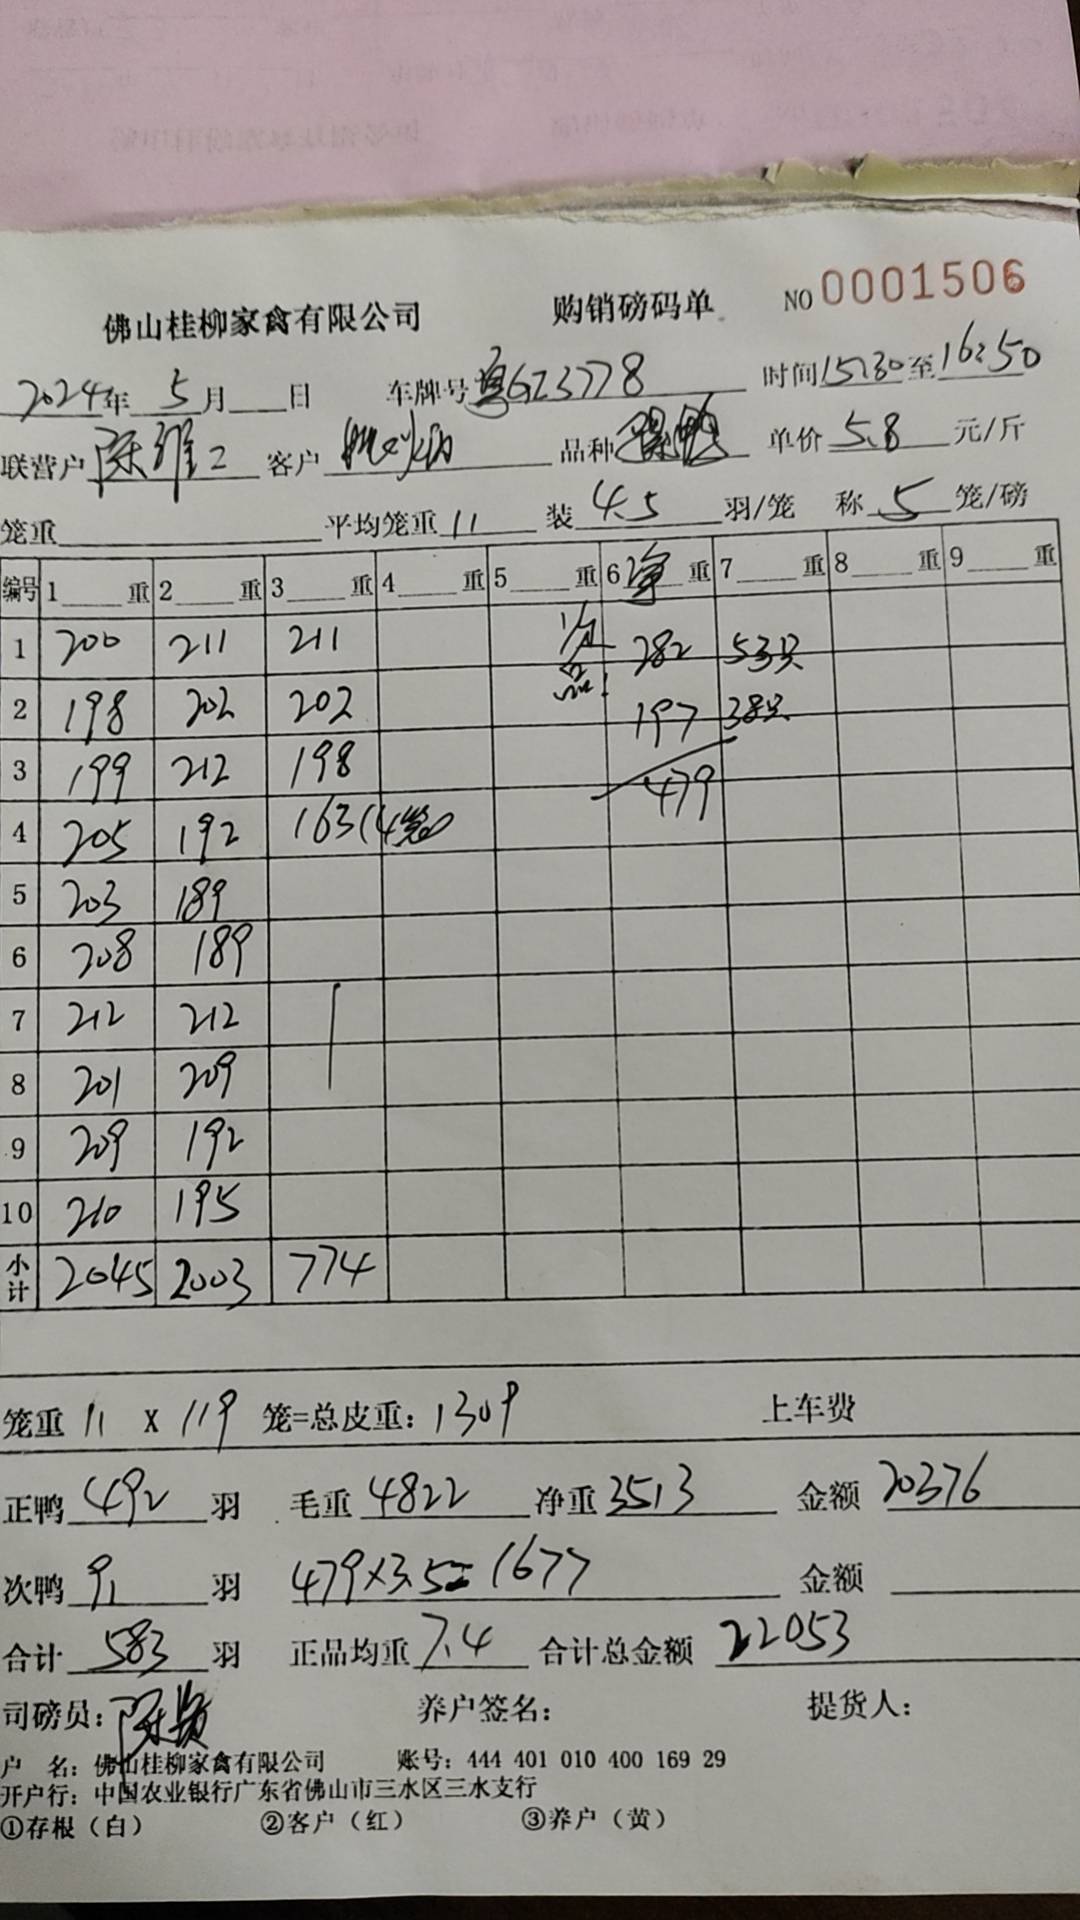 佛山桂柳家禽有限公司 购销磅码单 NO 0001506
2024年 5月 日 车牌号 粤GZ3778 时间 15:30 至 16:50
联营户 陈维二 客户 品种 单价 5.8 元/斤
笼重 平均笼重 11 装 4.5 羽/笼 称 5 笼/磅
编号 1 重 2 重 3 重 4 重 5 重 6 净 重 7 重 8 重 9 重
1 200 211 211 次品: 282 53只
2 198 202 202 197 38只
3 199 212 198 479
4 205 192 163(4笼)
5 203 189
6 208 189
7 212 212
8 201 209
9 209 192
10 210 195
小计 2045 2003 774
笼重 11 X 119 笼=总皮重: 1309 上车费
正鸭 492 羽 毛重 4822 净重 3513 金额 20376
次鸭 91 羽 479×3.5=1677 金额
合计 583 羽 正品均重 7.4 合计总金额 22053
司磅员: 养户签名: 提货人:
户 名: 佛山桂柳家禽有限公司 账号: 444 401 010 400 169 29
开户行: 中国农业银行广东省佛山市三水区三水支行
①存根（白） ②客户（红） ③养户（黄）